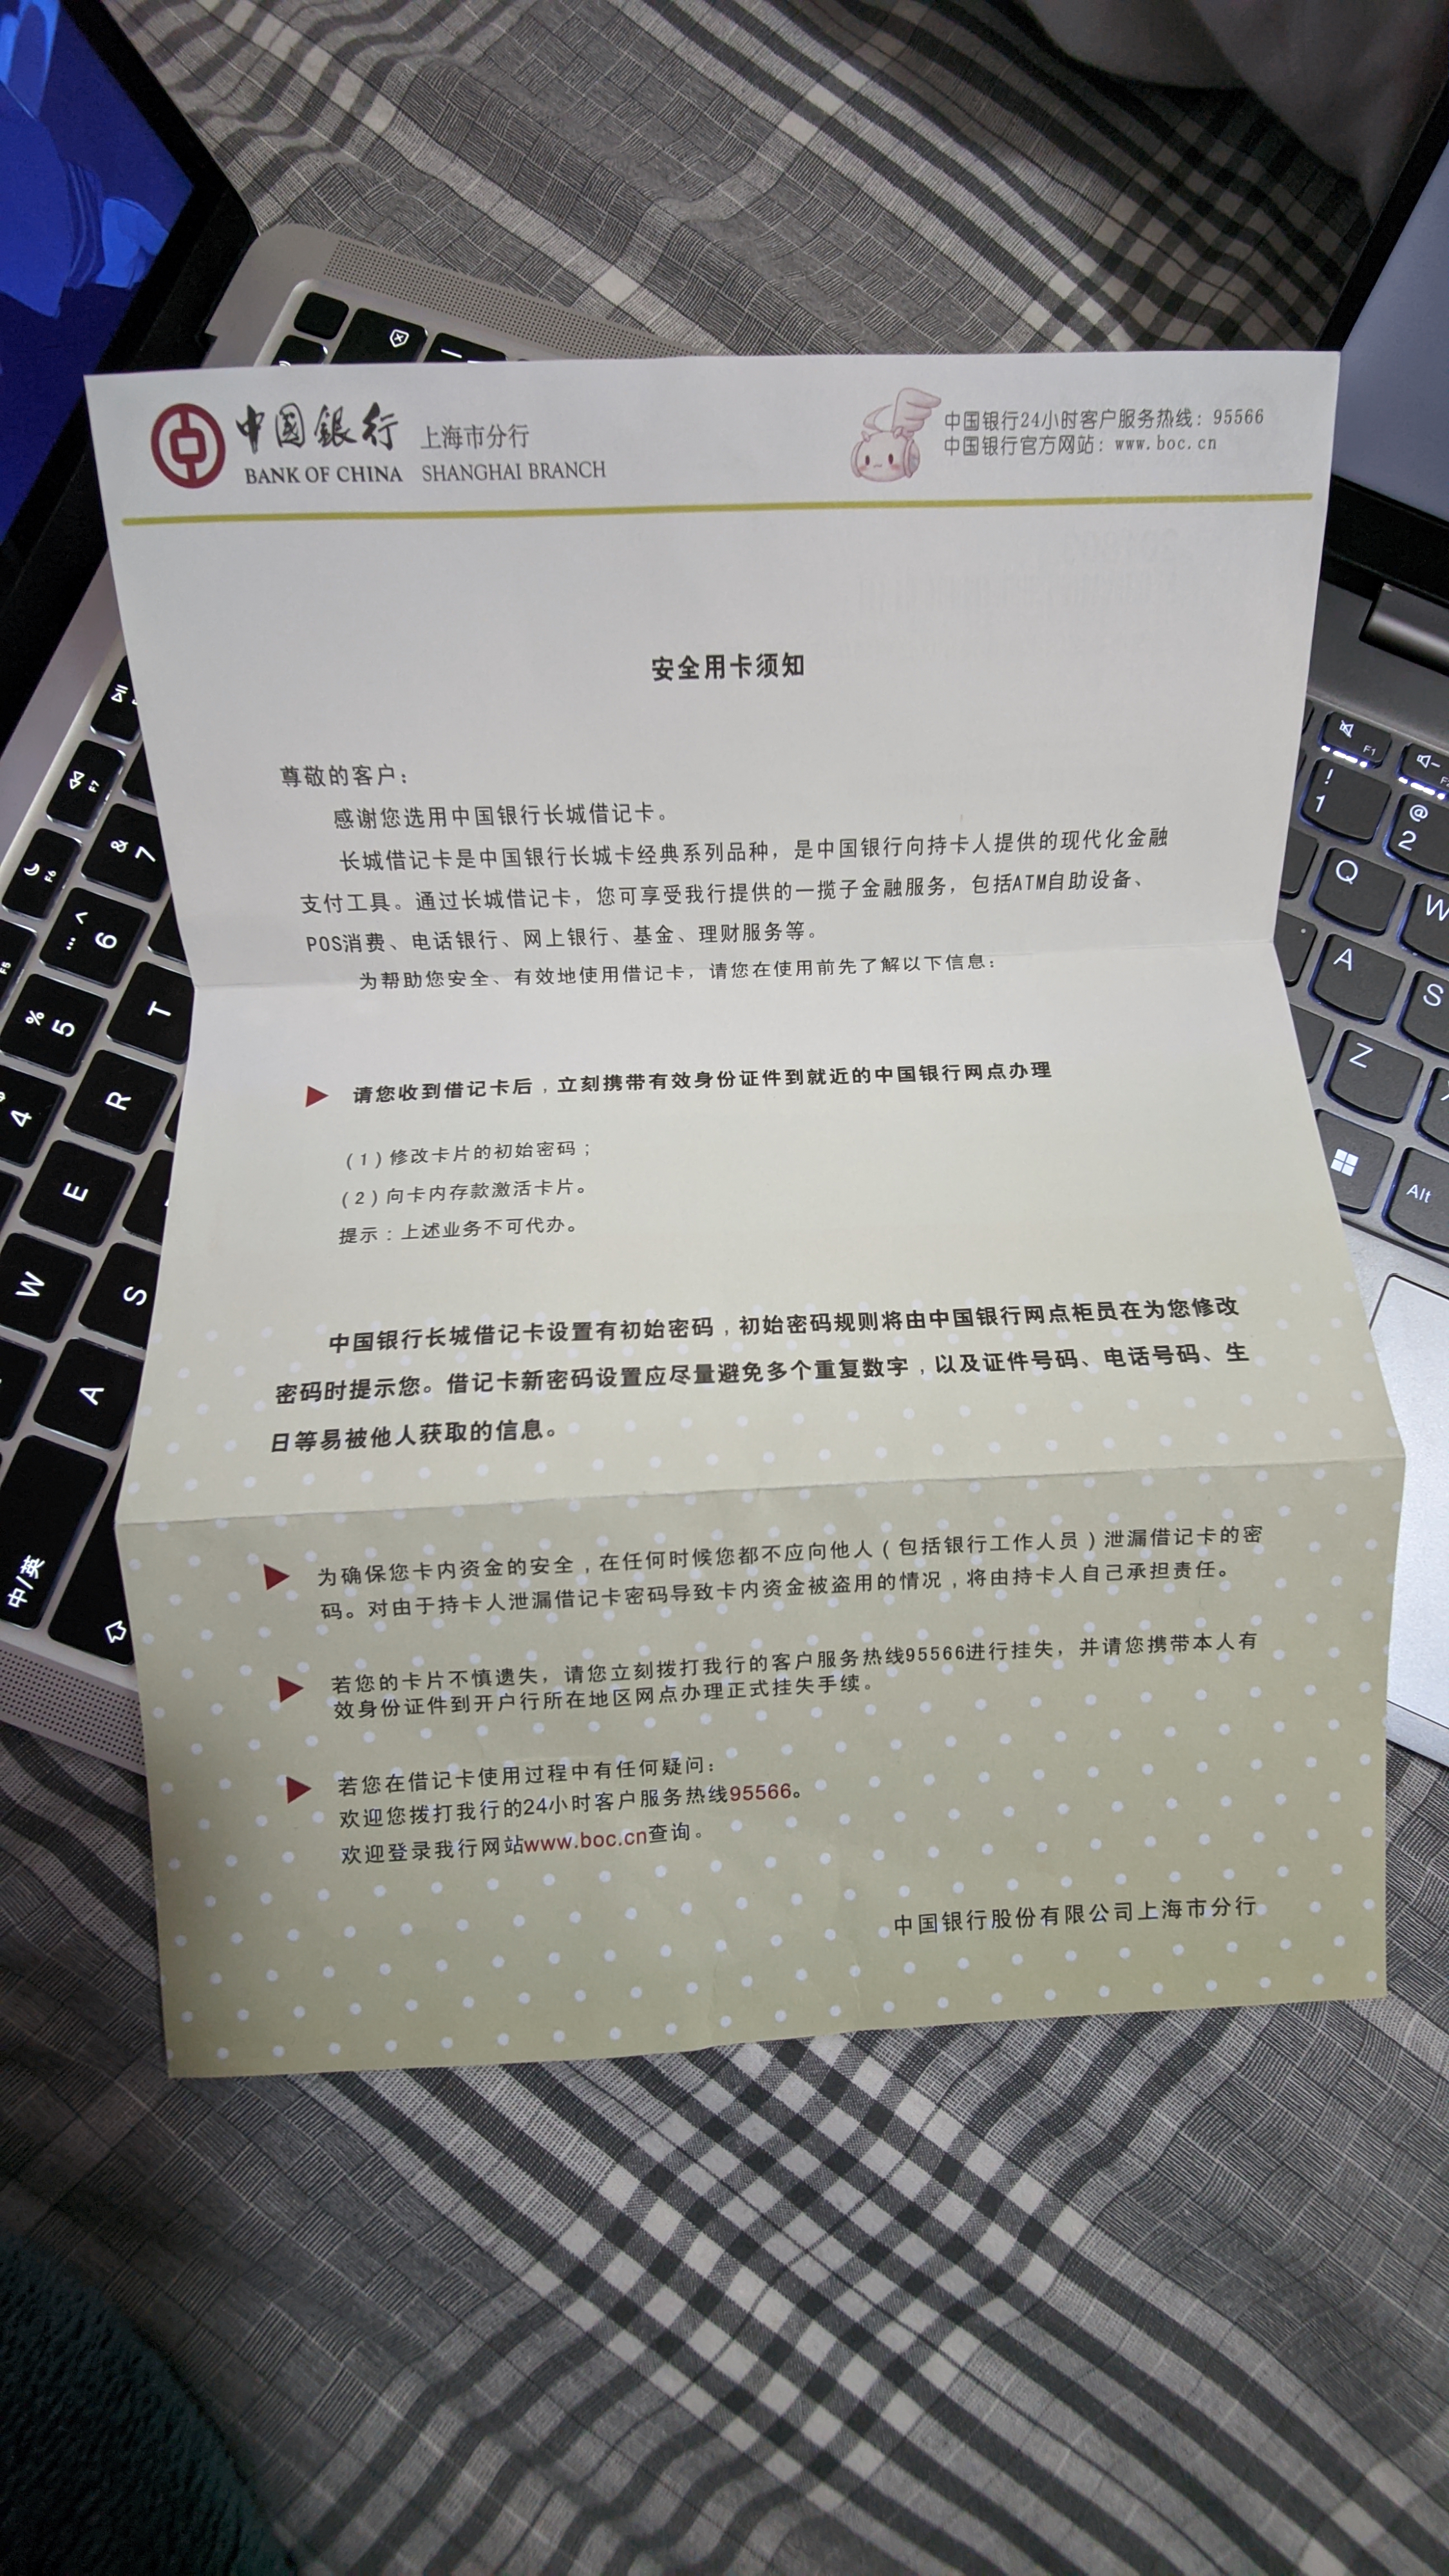 中国銀行 上海市分行
BANK OF CHINA SHANGHAI BRANCH
中国银行24小时客户服务热线：95566
中国银行官方网站：www.boc.cn
安全用卡须知
尊敬的客户：
感谢您选用中国银行长城借记卡。
长城借记卡是中国银行长城卡经典系列品种，是中国银行向持卡人提供的现代化金融
支付工具。通过长城借记卡，您可享受我行提供的一揽子金融服务，包括ATM自助设备、
POS消费、电话银行、网上银行、基金、理财服务等。
为帮助您安全、有效地使用借记卡，请您在使用前先了解以下信息：
▶ 请您收到借记卡后，立刻携带有效身份证件到就近的中国银行网点办理
（1）修改卡片的初始密码；
（2）向卡内存款激活卡片。
提示：上述业务不可代办。
中国银行长城借记卡设置有初始密码，初始密码规则将由中国银行网点柜员在为您修改
密码时提示您。借记卡新密码设置应尽量避免多个重复数字，以及证件号码、电话号码、生
日等易被他人获取的信息。
▶ 为确保您卡内资金的安全，在任何时候您都不应向他人（包括银行工作人员）泄漏借记卡的密
码。对由于持卡人泄漏借记卡密码导致卡内资金被盗用的情况，将由持卡人自己承担责任。
▶ 若您的卡片不慎遗失，请您立刻拨打我行的客户服务热线95566进行挂失，并请您携带本人有
效身份证件到开户行所在地区网点办理正式挂失手续。
▶ 若您在借记卡使用过程中有任何疑问：
欢迎您拨打我行的24小时客户服务热线95566。
欢迎登录我行网站www.boc.cn查询。
中国银行股份有限公司上海市分行
F7
& 7
F6
^ 6
…
F5
% 5
T
4
R
E
W
S
A
中/英
F1
! 1
@ 2
Q
W
A
S
Z
Alt